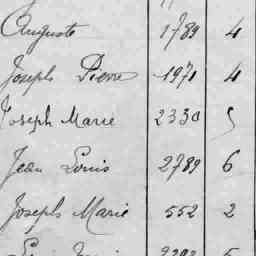 Auguste 1789 4
Joseph Pierre 1971 4
Joseph Marie 2330 5
Jean Louis 2789 6
Joseph Marie 552 2